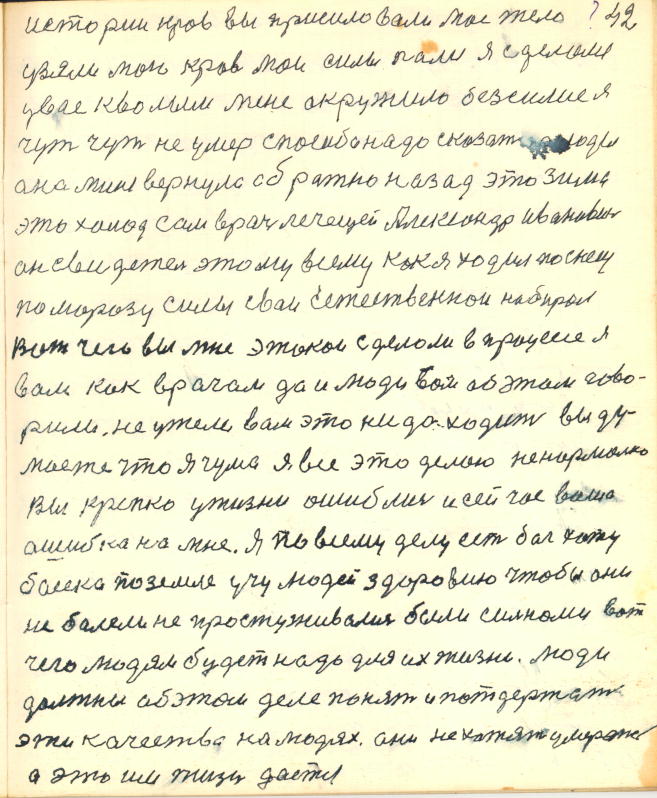 истории кров вы присиловали мое тело 42
узяли мою кров мои силы пали я сделоли
увае кволым мене окружило безсилие я
чут чут не умер способа надо сказат
она мине вернула обратно назад это зима
это холод сам врач лечещей Александр Иванович
он свидетел этому всему как я ходил по снегу
по морозу силы сваи естественнои набирал
Вот чего вы мне этокои сделоли в процессе я
вам как врачам да и люди вам об этом гово-
рили. не ужели вам это ни до ходит вы ду-
маете что я чума я все это делаю ненормално
Вы крепко ужизни ошиблис и сей час ваша
ошибка на мне. Я по всему делу ест бог хожу
босека по земле учу людей здоровию чтобы они
не болели не простуживалис были силными вот
чего людям будет надо для их жизни. люди
должны об этом деле понят и потдержат
эти качества на людях. они не хотят умерат
а это им жизн даеты